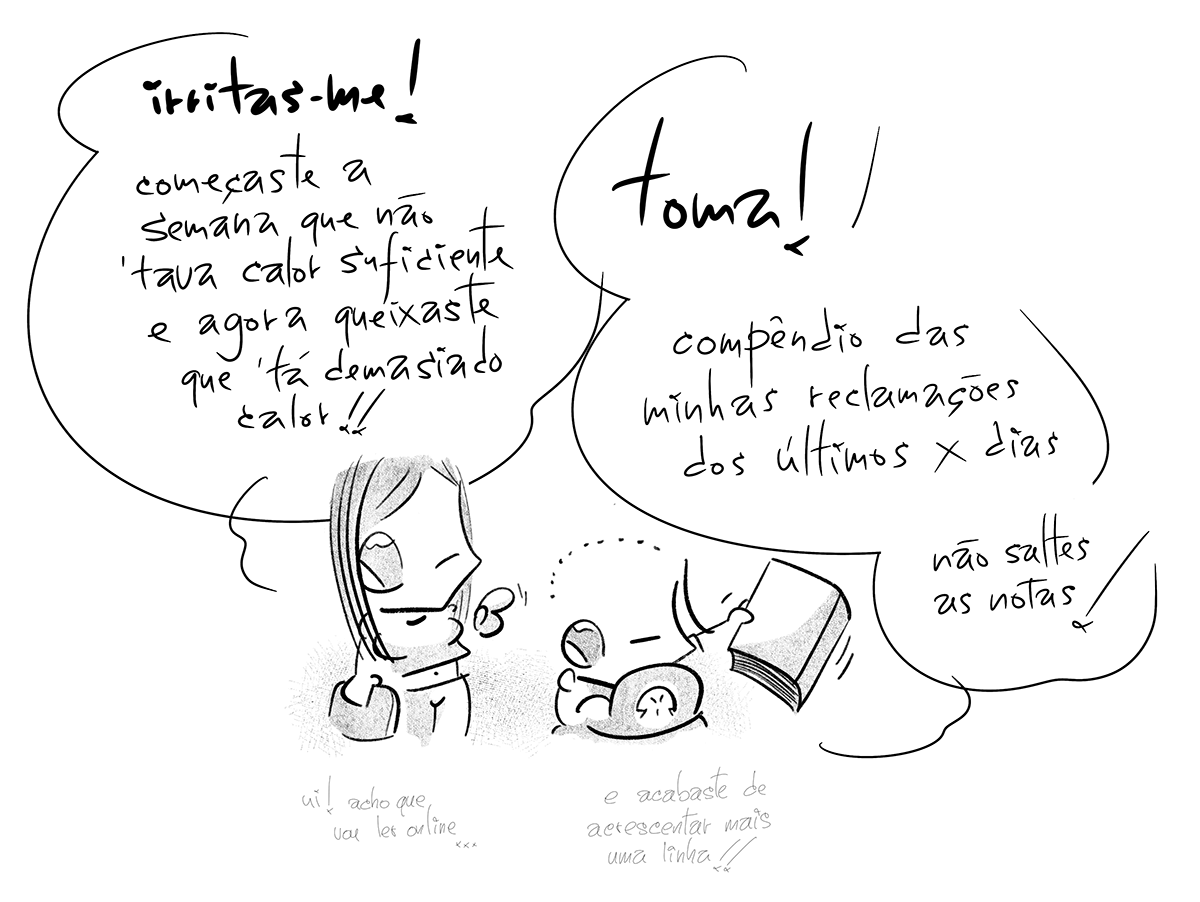 irritas-me!
começaste a
semana que não
'tava calor suficiente
e agora queixaste
que 'tá demasiado
calor!!
toma!
compêndio das
minhas reclamações
dos últimos x dias
não saltes
as notas!
ui! acho que
vou ler online...
e acabaste de
acrescentar mais
uma linha!!